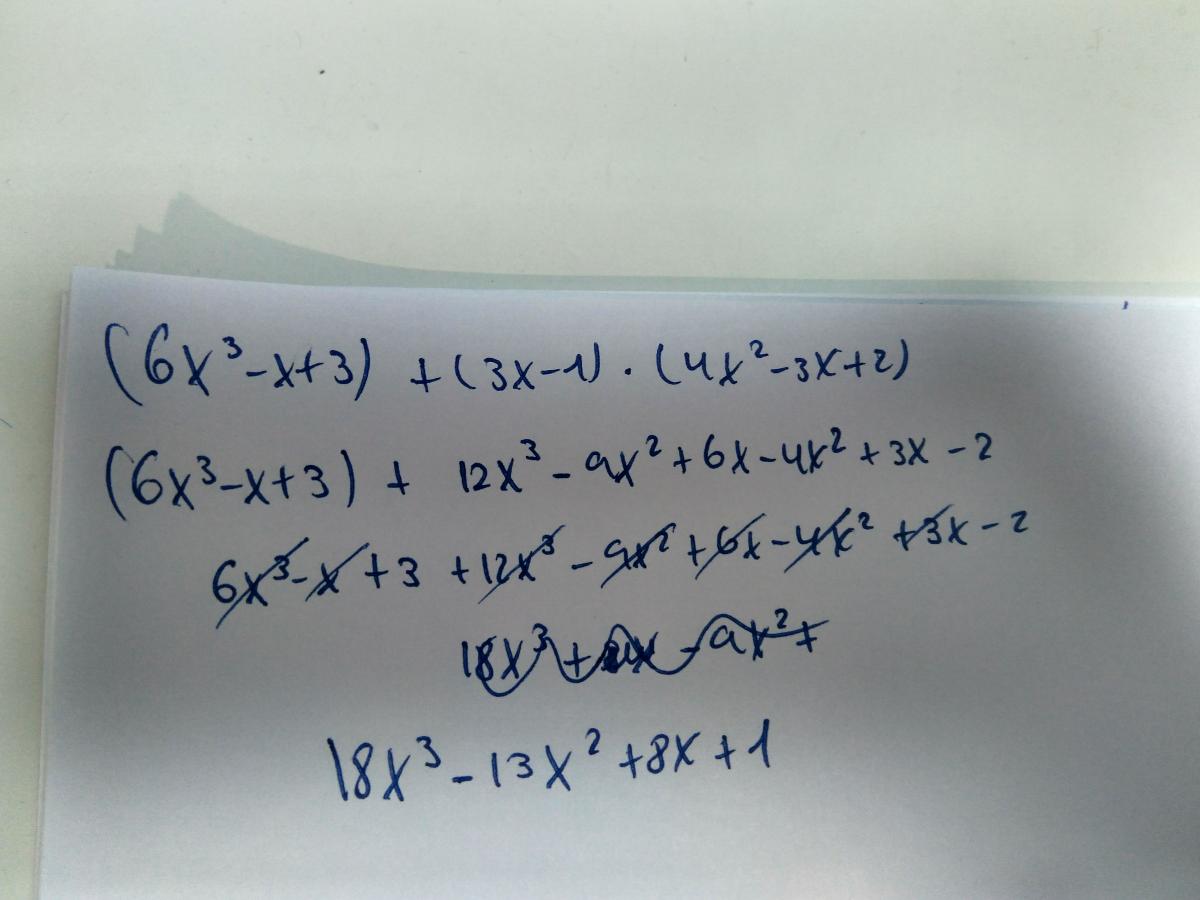 (6x³-x+3) + (3x-1) · (4x²-3x+2)
(6x³-x+3) + 12x³ - 9x² + 6x - 4x² + 3x - 2
6x³ - x + 3 + 12x³ - 9x² + 6x - 4x² + 3x - 2
18x³ - 13x² + 8x + 1